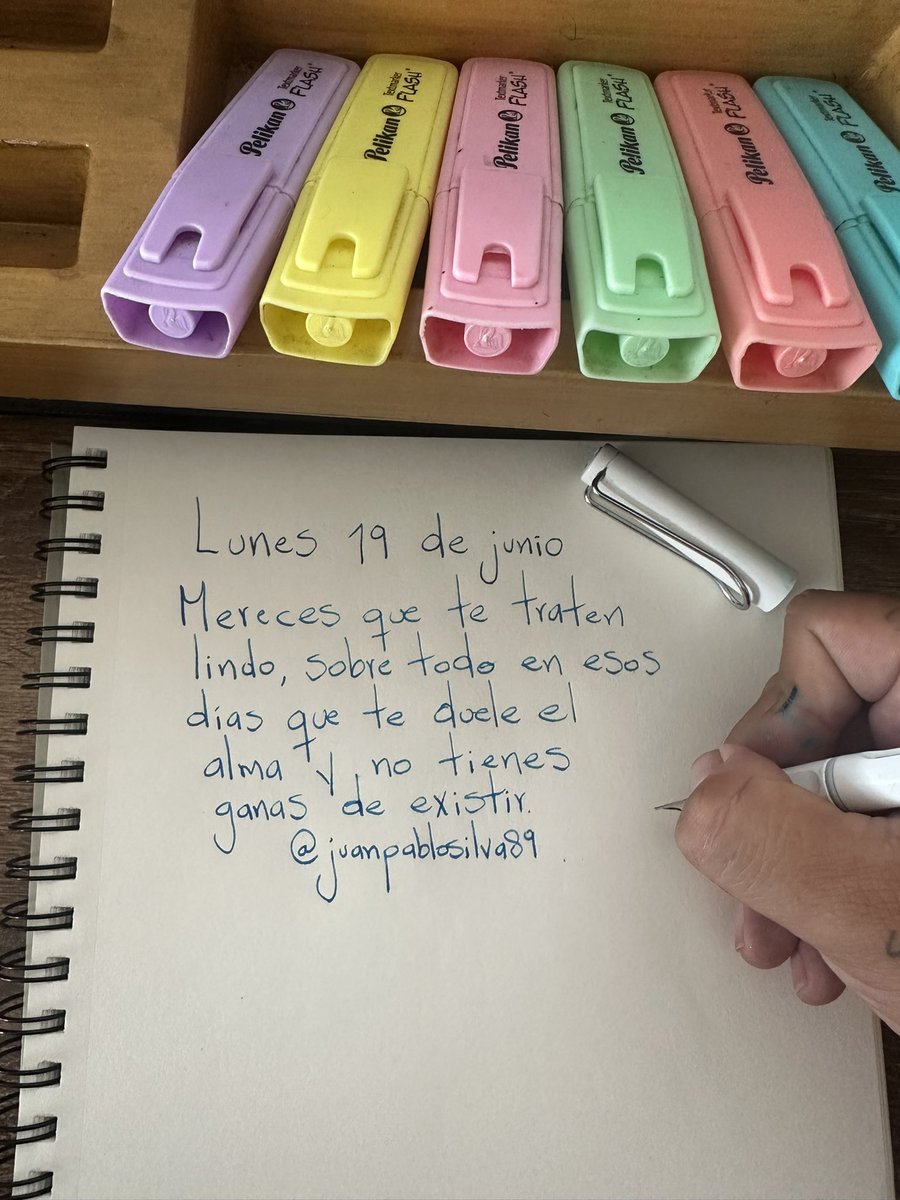 Pelikan Textmarker FLASH
Pelikan Textmarker FLASH
Pelikan Textmarker FLASH
Pelikan Textmarker FLASH
Pelikan Textmarker FLASH
Pelikan Textmarker FLASH
Lunes 19 de junio
Mereces que te traten
lindo, sobre todo en esos
días que te duele el
alma y no tienes
ganas de existir.
@juanpablosilva89